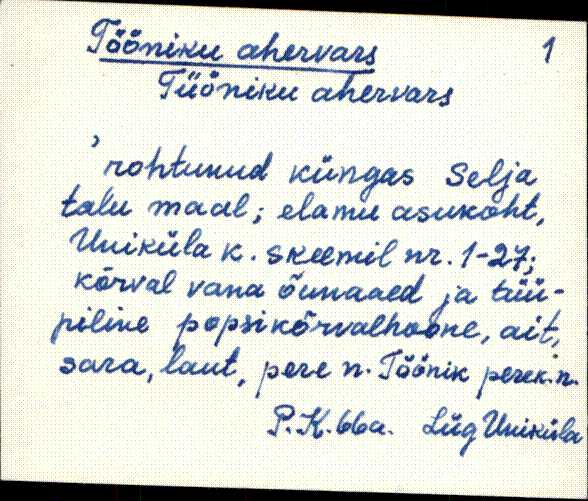 Tööniku ahervars 1
Tüöniku ahervars
'rohtunud küngas Selja
talu maal; elamu asukoht,
Uniküla k. skeemil nr. 1-27;
kõrval vana õunaaed ja tüü-
piline popsikõrvalhoone, ait,
sara, laut, pere n. Töönik perek.n.
P.K. 66a. Lüg Uniküla